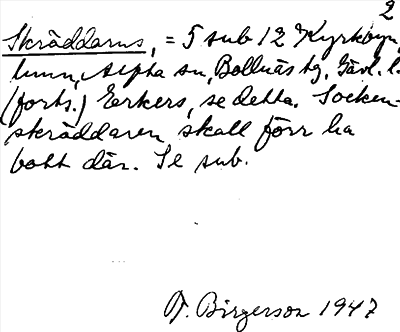 2
Skräddarns, = 5 sub 12 Kyrkbyn,
Alfta sn, Bollnäs tg, Gävl. l.
(forts.) Eerkers, se detta. Socken-
skräddaren skall förr ha
bott där. Se sub.
F. Birgerson 1947